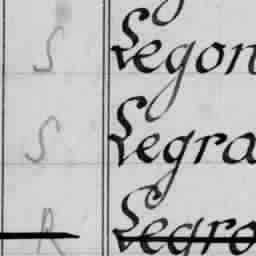 S Segon
S Segra
R Segro